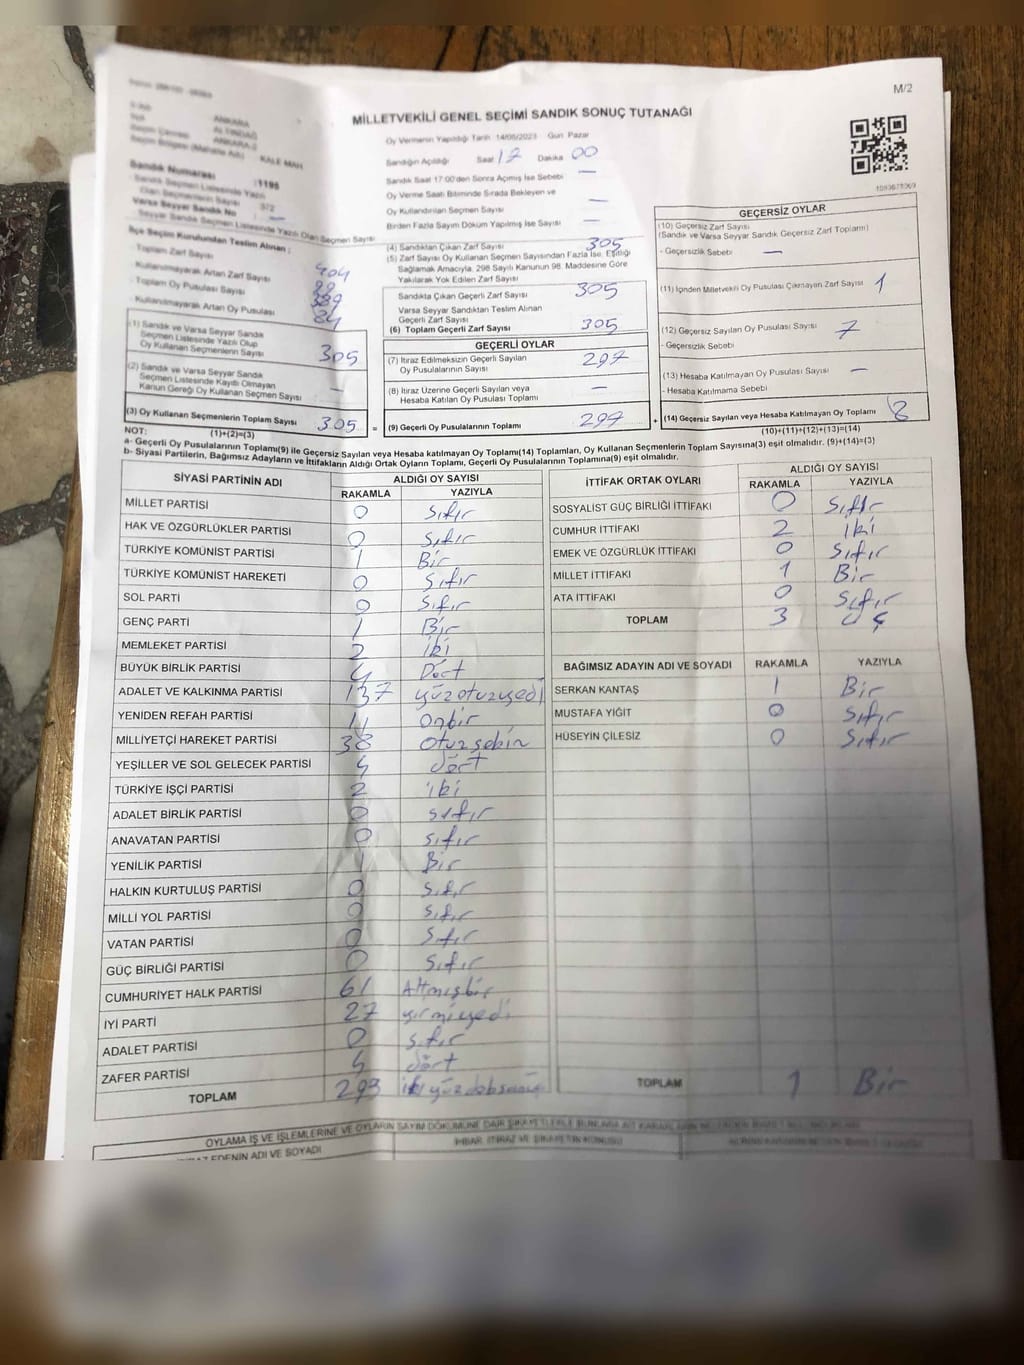 M/2
MİLLETVEKİLİ GENEL SEÇİMİ SANDIK SONUÇ TUTANAĞI
ANKARA
ALTINDAĞ
ANKARA-2
KALE MAH
Oy Vermenin Yapıldığı Tarih 14/05/2023 Gün Pazar
Sandığın Açıldığı Saat 17 Dakika 00
Sandık Saat 17:00'den Sonra Açılmış İse Sebebi —
Oy Verme Saati Bitiminde Sırada Bekleyen ve
Oy Kullandırılan Seçmen Sayısı —
Birden Fazla Sayım Döküm Yapılmış İse Sayısı —
Sandık Numarası : 1195
Sandık Seçmen Listesinde Yazılı
Olan Seçmenlerin Sayısı 372
Varsa Seyyar Sandık No —
Seyyar Sandık Seçmen Listesinde Yazılı Olan Seçmen Sayısı
İlçe Seçim Kurulundan Teslim Alınan :
- Toplam Zarf Sayısı 404
- Kullanılmayarak Artan Zarf Sayısı
- Toplam Oy Pusulası Sayısı 389
- Kullanılmayarak Artan Oy Pusulası 84
(1) Sandık ve Varsa Seyyar Sandık
Seçmen Listesinde Yazılı Olup
Oy Kullanan Seçmenlerin Sayısı 305
(2) Sandık ve Varsa Seyyar Sandık
Seçmen Listesinde Kayıtlı Olmayan
Kanun Gereği Oy Kullanan Seçmen Sayısı —
(3) Oy Kullanan Seçmenlerin Toplam Sayısı 305
(1)+(2)=(3)
(4) Sandıktan Çıkan Zarf Sayısı 305
(5) Zarf Sayısı Oy Kullanan Seçmen Sayısından Fazla İse, Eşitliği
Sağlamak Amacıyla, 298 Sayılı Kanunun 98. Maddesine Göre
Yakılarak Yok Edilen Zarf Sayısı
Sandıkta Çıkan Geçerli Zarf Sayısı 305
Varsa Seyyar Sandıktan Teslim Alınan
Geçerli Zarf Sayısı
(6) Toplam Geçerli Zarf Sayısı 305
GEÇERLİ OYLAR
(7) İtiraz Edilmeksizin Geçerli Sayılan
Oy Pusulalarının Sayısı 297
(8) İtiraz Üzerine Geçerli Sayılan veya
Hesaba Katılan Oy Pusulası Toplamı —
= (9) Geçerli Oy Pusulalarının Toplamı 297 +
GEÇERSİZ OYLAR
(10) Geçersiz Zarf Sayısı
(Sandık ve Varsa Seyyar Sandık Geçersiz Zarf Toplamı)
- Geçersizlik Sebebi —
(11) İçinden Milletvekili Oy Pusulası Çıkmayan Zarf Sayısı 1
(12) Geçersiz Sayılan Oy Pusulası Sayısı 7
- Geçersizlik Sebebi
(13) Hesaba Katılmayan Oy Pusulası Sayısı —
- Hesaba Katılmama Sebebi
(14) Geçersiz Sayılan veya Hesaba Katılmayan Oy Toplamı 8
(10)+(11)+(12)+(13)=(14)
NOT:
a- Geçerli Oy Pusulalarının Toplamı(9) ile Geçersiz Sayılan veya Hesaba katılmayan Oy Toplamı(14) Toplamları, Oy Kullanan Seçmenlerin Toplam Sayısına(3) eşit olmalıdır. (9)+(14)=(3)
b- Siyasi Partilerin, Bağımsız Adayların ve İttifakların Aldığı Ortak Oyların Toplamı, Geçerli Oy Pusulalarının Toplamına(9) eşit olmalıdır.
SİYASİ PARTİNİN ADI ALDIĞI OY SAYISI
RAKAMLA YAZIYLA
MİLLET PARTİSİ 0 Sıfır
HAK VE ÖZGÜRLÜKLER PARTİSİ 0 Sıfır
TÜRKİYE KOMÜNİST PARTİSİ 1 Bir
TÜRKİYE KOMÜNİST HAREKETİ 0 Sıfır
SOL PARTİ 0 Sıfır
GENÇ PARTİ 1 Bir
MEMLEKET PARTİSİ 2 İki
BÜYÜK BİRLİK PARTİSİ 4 Dört
ADALET VE KALKINMA PARTİSİ 137 yüzotuzyedi
YENİDEN REFAH PARTİSİ 11 Onbir
MİLLİYETÇİ HAREKET PARTİSİ 38 Otuzsekin
YEŞİLLER VE SOL GELECEK PARTİSİ 4 dört
TÜRKİYE İŞÇİ PARTİSİ 2 iki
ADALET BİRLİK PARTİSİ 0 sıfır
ANAVATAN PARTİSİ 0 sıfır
YENİLİK PARTİSİ 1 Bir
HALKIN KURTULUŞ PARTİSİ 0 Sıfır
MİLLİ YOL PARTİSİ 0 Sıfır
VATAN PARTİSİ 0 Sıfır
GÜÇ BİRLİĞİ PARTİSİ 0 Sıfır
CUMHURİYET HALK PARTİSİ 61 Altmışbir
İYİ PARTİ 27 yirmiyedi
ADALET PARTİSİ 0 Sıfır
ZAFER PARTİSİ 4 dört
TOPLAM 293
İTTİFAK ORTAK OYLARI ALDIĞI OY SAYISI
RAKAMLA YAZIYLA
SOSYALİST GÜÇ BİRLİĞİ İTTİFAKI 0 Sıfır
CUMHUR İTTİFAKI 2 İki
EMEK VE ÖZGÜRLÜK İTTİFAKI 0 Sıfır
MİLLET İTTİFAKI 1 Bir
ATA İTTİFAKI 0 Sıfır
TOPLAM 3 Üç
BAĞIMSIZ ADAYIN ADI VE SOYADI RAKAMLA YAZIYLA
SERKAN KANTAŞ 1 Bir
MUSTAFA YİĞİT 0 Sıfır
HÜSEYİN ÇİLESİZ 0 Sıfır
TOPLAM 1 Bir
OYLAMA İŞ VE İŞLEMLERİNE VE OYLARIN SAYIM DÖKÜMÜNE DAİR ŞİKAYETLERLE BUNLARA AİT KARARLARIN
İHBAR, İTİRAZ VE ŞİKAYETİN KONUSU
EDENİN ADI VE SOYADI